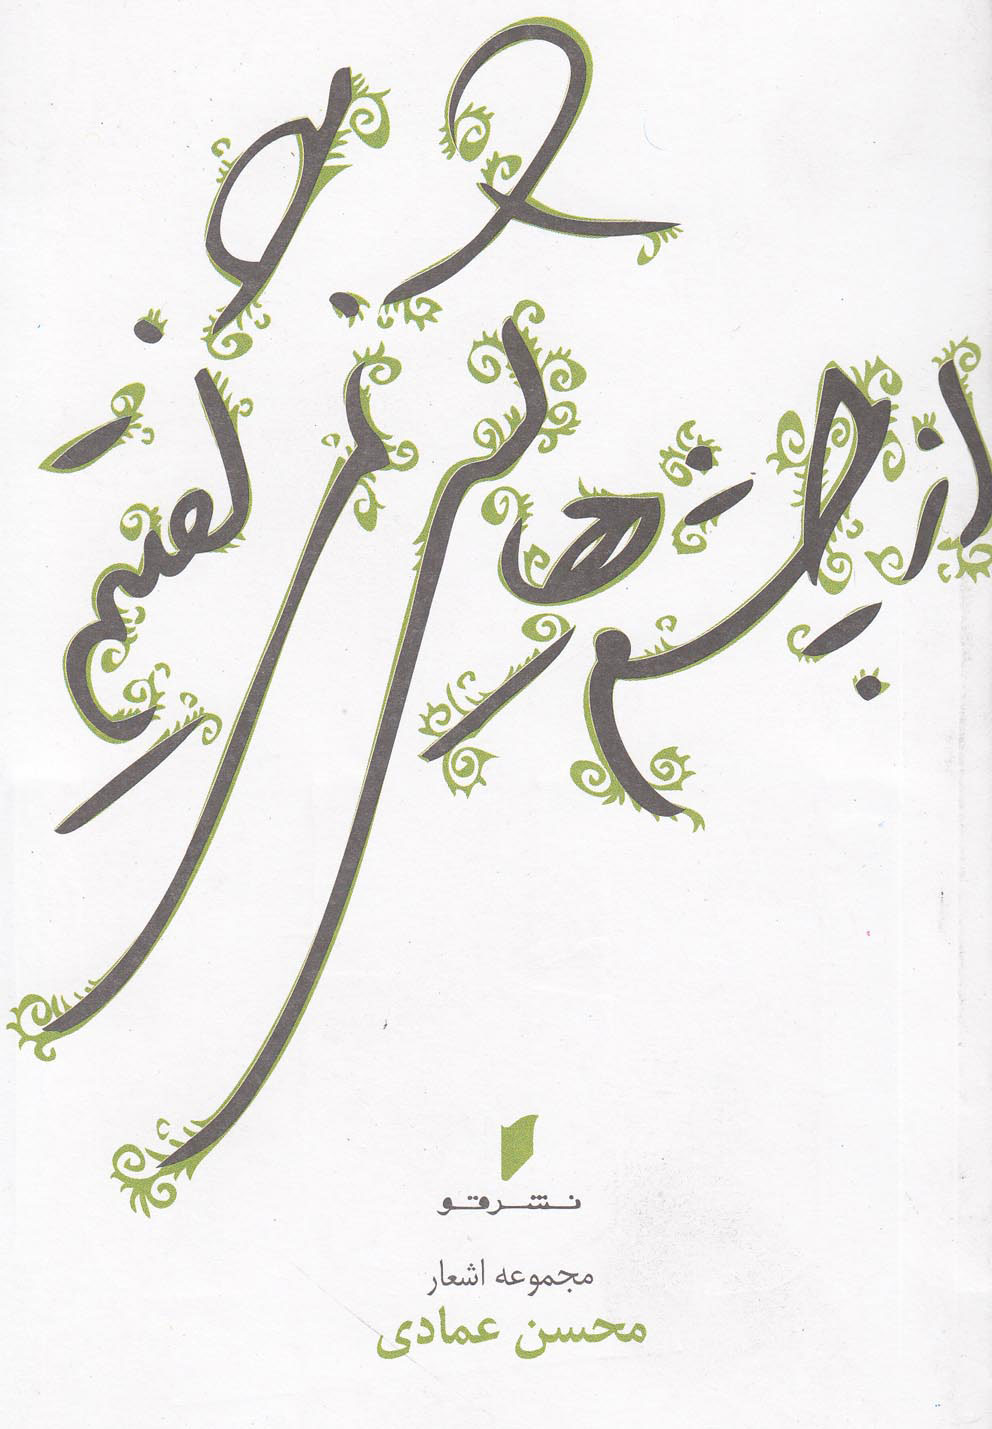 از چشم هایش
نگفتیم
نشر قو
مجموعه اشعار
محسن عمادی